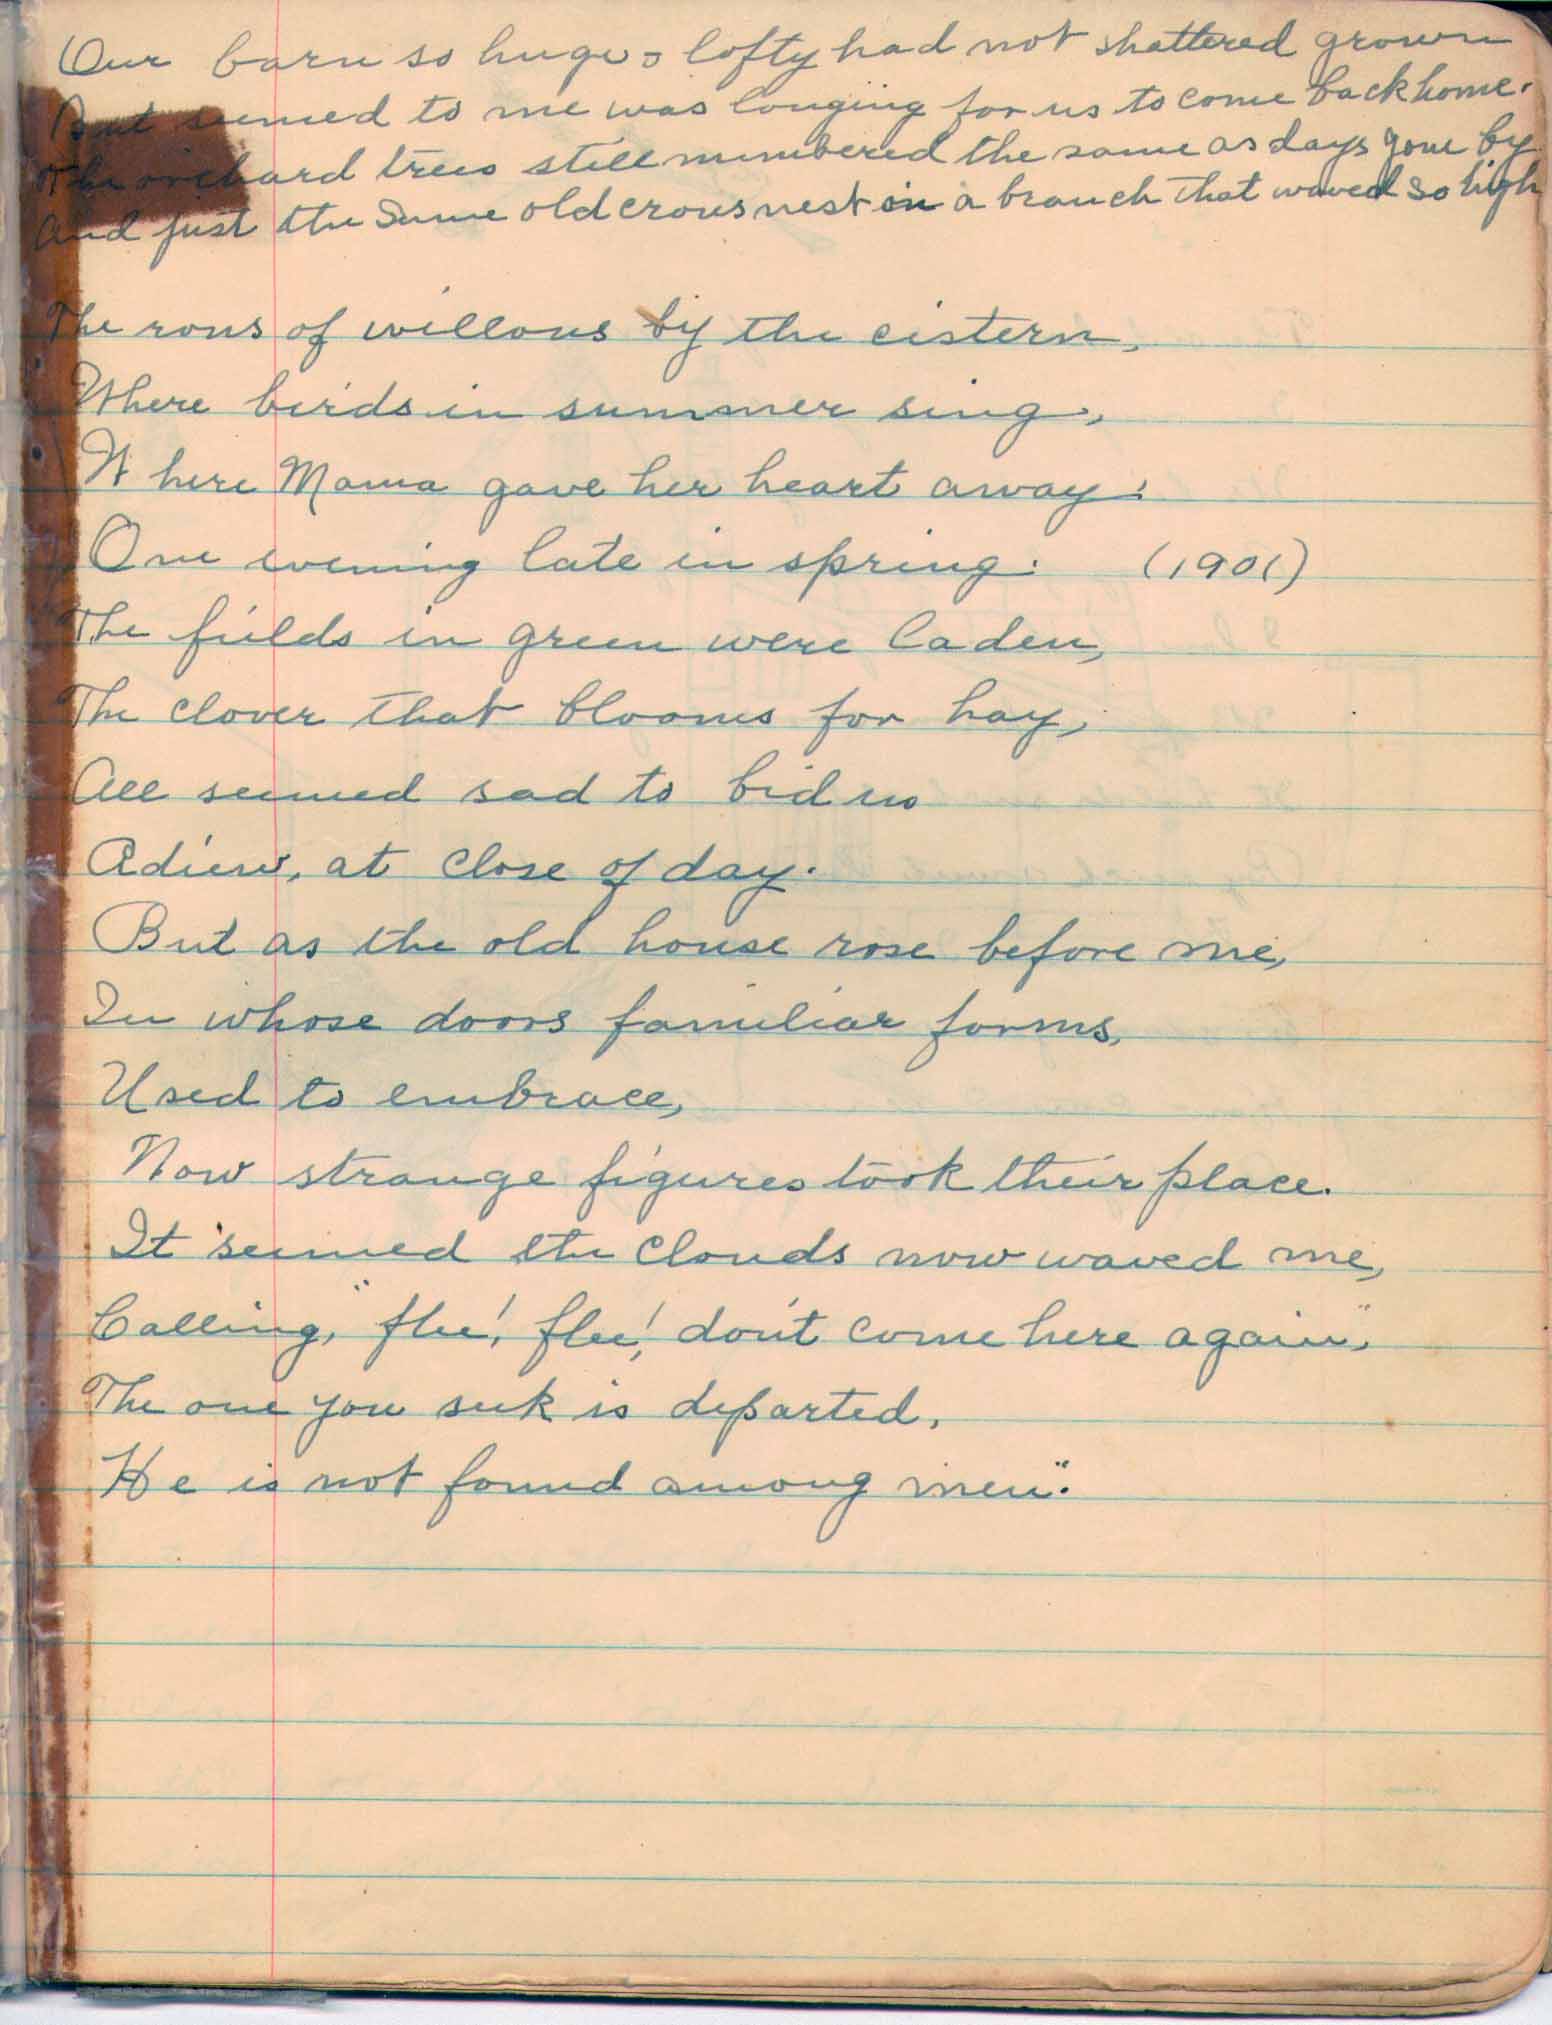 Our barn so huge & lofty had not shattered grown
But seemed to me was longing for us to come back home.
The orchard trees still numbered the same as days gone by
And just the same old crows nest in a branch that waved so high
The rows of willows by the cistern,
Where birds in summer sing,
Where Mama gave her heart away:
One evening late in spring. (1901)
The fields in green were laden,
The clover that blooms for hay,
All seemed sad to bid us
Adieu, at close of day.
But as the old house rose before me,
In whose doors familiar forms,
Used to embrace,
Now strange figures took their place.
It seemed the clouds now waved me,
Calling, "flee! flee! don't come here again",
The one you seek is departed,
He is not found among men".